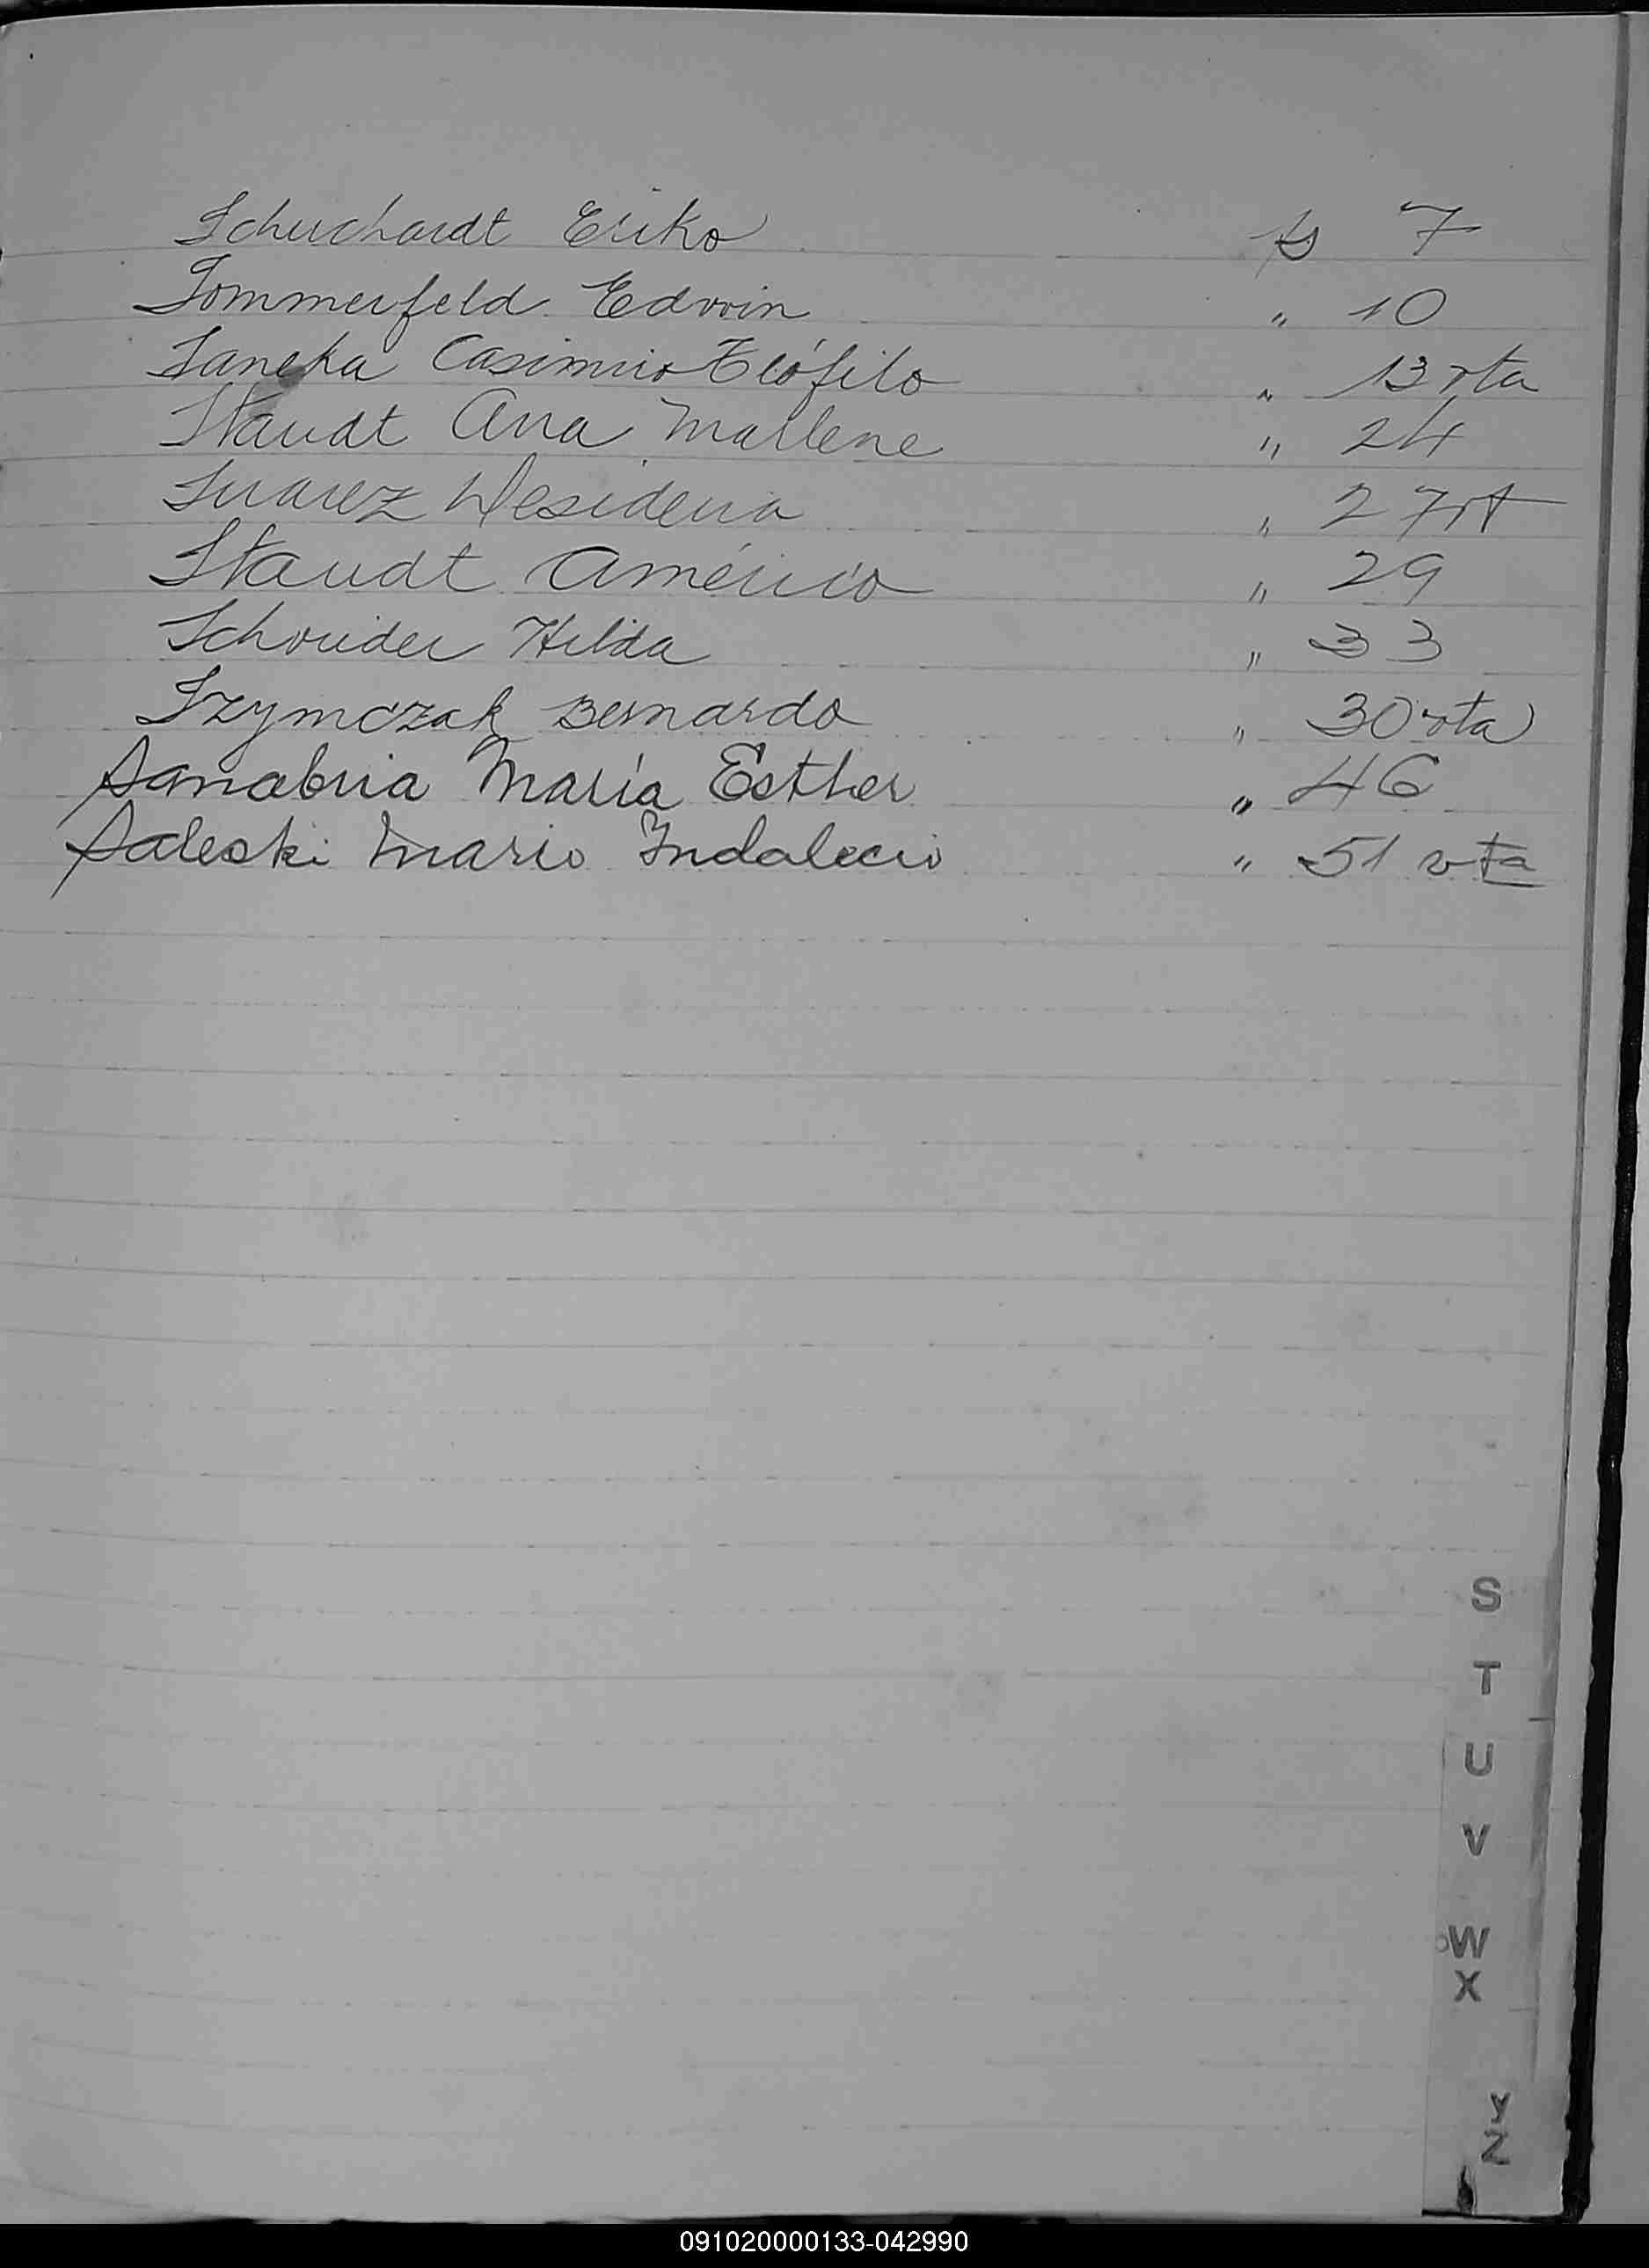 Schuchardt Eriko fs 7
Sommerfeld Edwin " 10
Saneka Casimiro Teófilo " 13 vta
Staudt Ana Marlene " 24
Suarez Desideria " 27 vt
Staudt Américo " 29
Schneider Hilda " 33
Szymczak Bernardo " 30 vta
Sanabria María Esther " 46
Saleski Mario Indalecio " 51 vta
S
T
U
V
W
X
Y
Z
091020000133-042990